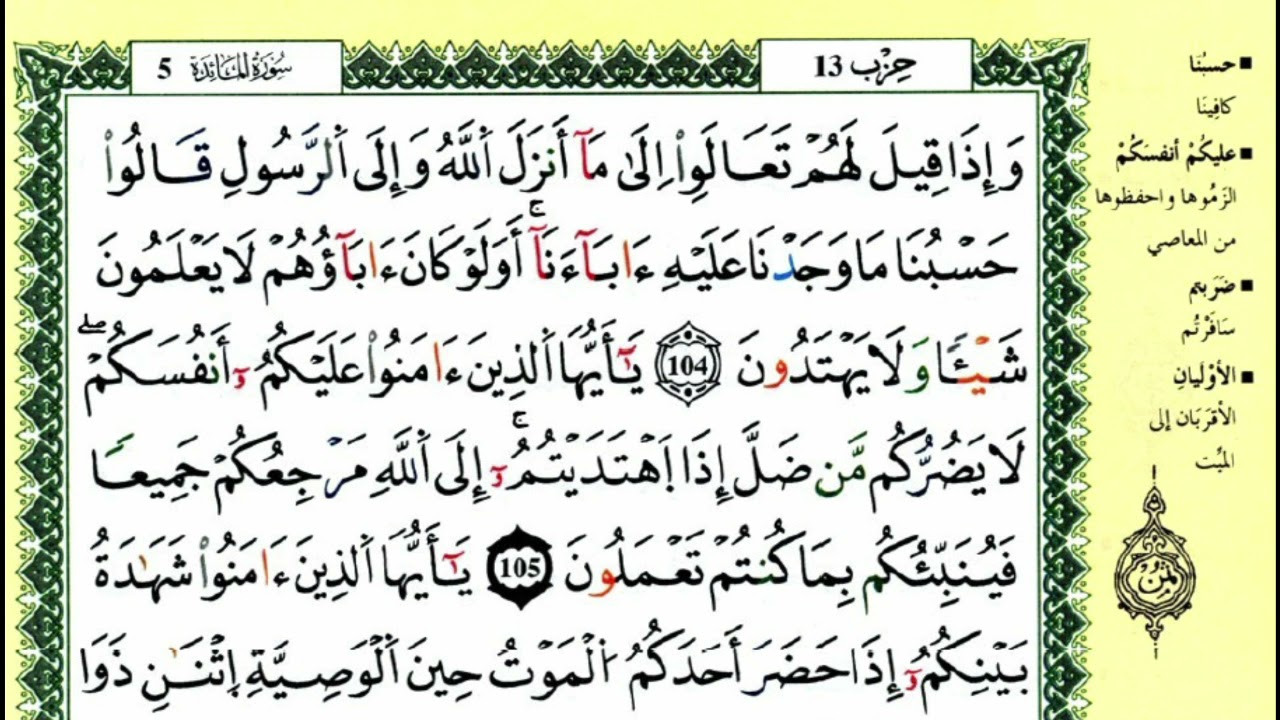 سُورَةُ المَائِدَة 5
حِزْب 13
وَإِذَا قِيلَ لَهُمْ تَعَالَوِا۟ اِلَىٰ مَآ أَنزَلَ اَللَّهُ وَإِلَى اَلرَّسُولِ قَالُوا۟
حَسْبُنَا مَا وَجَدْنَا عَلَيْهِ ءَابَآءَنَآ ۚ أَوَلَوْ كَانَ ءَابَآؤُهُمْ لَا يَعْلَمُونَ
شَيْـًٔا وَلَا يَهْتَدُونَ 104 يَـٰٓأَيُّهَا اَلذِينَ ءَامَنُوا۟ عَلَيْكُمُۥٓ أَنفُسَكُمْ ۖ
لَا يَضُرُّكُم مَّن ضَلَّ إِذَا اَهْتَدَيْتُمُۥٓ ۚ إِلَى اَللَّهِ مَرْجِعُكُمْ جَمِيعًا
فَيُنَبِّئُكُم بِمَا كُنتُمْ تَعْمَلُونَ 105 يَـٰٓأَيُّهَا اَلذِينَ ءَامَنُوا۟ شَهَـٰدَةُ
بَيْنِكُمُۥٓ إِذَا حَضَرَ أَحَدَكُمُ اُلْمَوْتُ حِينَ اَلْوَصِيَّةِ اِثْنَـٰنِ ذَوَا
■ حسبُنَا
كافِينَا
■ عليكُمْ أنفسَكُمْ
الزَمُوها و احفظوها
من المعاصي
■ ضَرَبتم
سَافَرْتُم
■ الأوْلَيانِ
الأقرَبَان إلى
الميِّت
ثُمُنْ